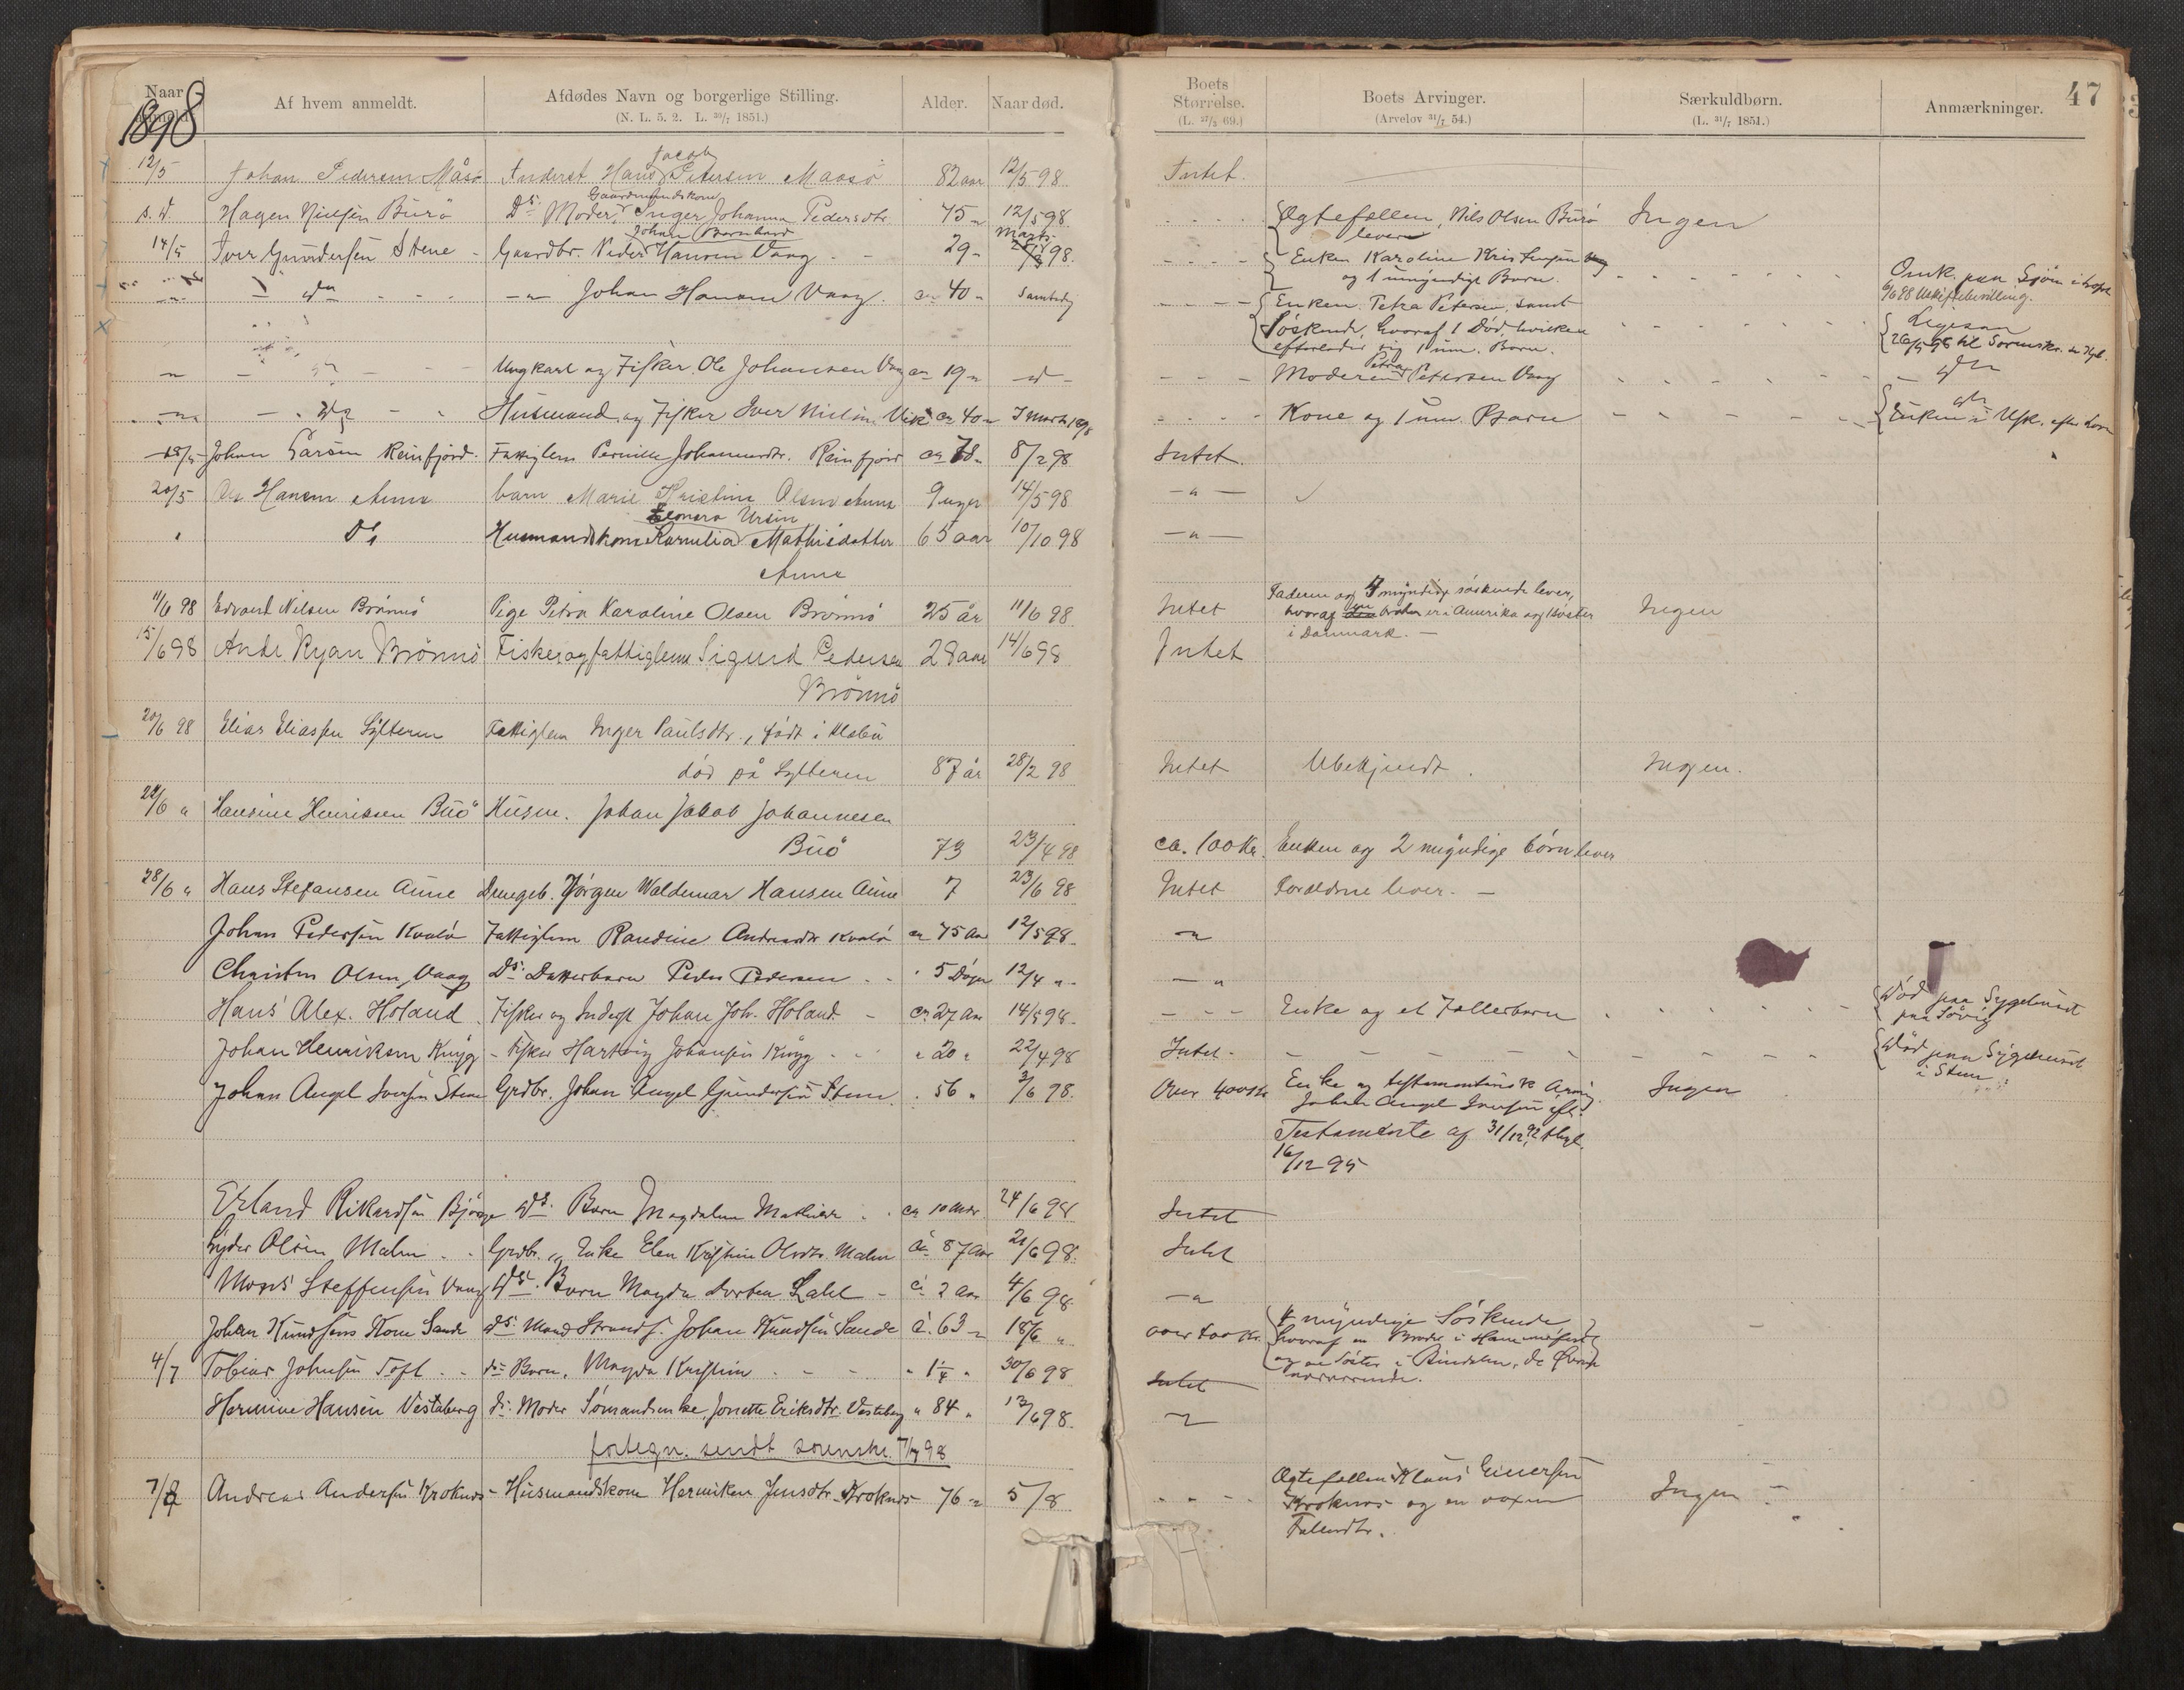 1898
Naar
anmeldt.
Af hvem anmeldt.
Afdødes Navn og borgerlige Stilling.
(N. L. 5. 2. L. 30/7 1851.)
Alder.
Naar død.
Boets
Størrelse.
(L. 27/3 69.)
Boets Arvinger.
(Arvelov 31/7 54.)
Særkuldbørn.
(L. 31/7 1851.)
Anmærkninger.
47
Jacob
12/5 Johan Pedersen Måsø Inderst Hans Petersen Maasø 82 aar 12/5 98 Intet.
Gaardmandskone
s. d. Hagen Nielsen Burø Ds. Moder, Inger Johanna Pedersdtr. 75 " 12/5 98 Ægtefællen, Nils Olsen Burø Ingen
lever
Johan Bernhard
Marts
14/5 Iver Gundersen Stene Gaardbr. Peder Hansen Vaag 29 " 98. Enken Karoline Kristensen
og 1 umyndigt Barn.
do — " — Johan Hansen Vaag. ca 40 " Samtidig Enken Petra Petersen, samt
Omk. paa Sjøen
6/6 98 Uskiftebevilling.
Søskende, hvoraf 1 Død, hvilken
efterlader sig 1 um. Barn.
26/5 98 til Sorenskr.
" Ungkarl og Fisker Ole Johansen Vaag ca 19 " d Moderen Petra Petersen Vaag do
— " — do Husmand og Fisker Iver Nielsen Vik ca 40 " 7 Marts 1898 Kone og 1 um. Barn do
Enken i Usk. efter Lov
18/5 Johan Larsen Reinfjord Fattiglem Pernille Johannesdtr. Reinfjord ca 78 " 8/2 98 Intet.
20/5 Ole Hansen Aune barn Marie Kristine Olsen Aune 9 uger 14/5 98 — " —
Eleonora Ursin
" Ds Husmandskone Kornelia Mathisdatter 65 aar 10/10 98 — " —
Aune
11/6 98 Edvard Nilsen Brønnø Pige Petra Karoline Olsen Brønnø 25 år 11/6 98 Intet Faderen og 4 myndige søskende lever, Ingen
hvoraf en broder er i Amerika og 1 søster
i Danmark. —
15/6 98 Andr Ryan Brønnø Fisker og fattiglem Sigurd Pedersen 28 aar 14/6 98 Intet
Brønnø
20/6 98 Elias Eliassen Sylteren Fattiglem Inger Paulsdtr., født i Klæbu
død på Sylteren 87 år 28/2 98 Intet Ubekjendt. Ingen.
22/6 " Hansine Henriksen Buø Husm. Johan Jakob Johannesen
Buø 73 23/4 98 ca. 100 Kr. Enken og 2 myndige børn lever
28/6 " Hans Stefansen Aune Drengeb. Jørgen Waldemar Hansen Aune 7 23/6 98 Intet Forældrene lever. —
Johan Pedersen Kvalø Fattiglem Randine Andreasdtr Kvalø ca 75 Aar 12/5 98. "
Christen Olsen Vaag Ds. Datterbarn Peder Pedersen " 5 Døgn 12/4 " — "
Hans Alex. Holand Fisker og Inderst Johan Joh. Holand ca 27 Aar 14/5 98. Enke og et Fællesbarn
Død paa Sygehuset
paa Søvig
Johan Henriksen Knyg Fisker Hartvig Johansen Knyg " 20 " 22/4 98 Intet.
Død paa Sygehuset
i Stene
Johan Angel Iversen Stene Grdbr. Johan Angel Gundersen Stene " 56 " 3/6 98. Over 4000 Kr. Enke og testamentarisk Arving Ingen
Johan Angel Iversen efter
Testamente af 31/12 92, thgl.
16/12 95
Erland Rikardsen Bjørge Ds. Barn Magdalene Mathilde ca 10 Mdr. 24/6 98 Intet
Lyder Olsen Malm Grdbr. Enke Elen Kristine Olsdtr. Malm ca 87 Aar 21/6 98. Intet
Mons Steffensen Vaag Ds. Barn Magda Dortea ca 2 Aar 4/6 98. — "
Johan Knudsens Kone Sande ds. Mand Strands. Johan Knudsen Sande ca. 63 " 18/6 " over 400 Kr. 4 myndige Søskende,
hvoraf en Broder i Hammerfest
og en Søster i Bindalen, de øvrige
nærværende.
4/7 Tobias Johnsen Toft ds Barn, Magda Kristine " 1 1/4 " 30/6 98 Intet
Hermine Hansen Vestaberg ds. Moder Sømandsenke Jonette Eriksdtr. Vestaberg " 84 " 13/6 98. "
fortegn. sendt sorenskr. 7/7 98
7/8 Andreas Andersen Kroknes Husmandskone Henrikea Jensdtr. Kroknes 76 " 5/8 Ægtefællen Klaus Einersen Ingen
Kroknes og en voxen
Fællesdtr.